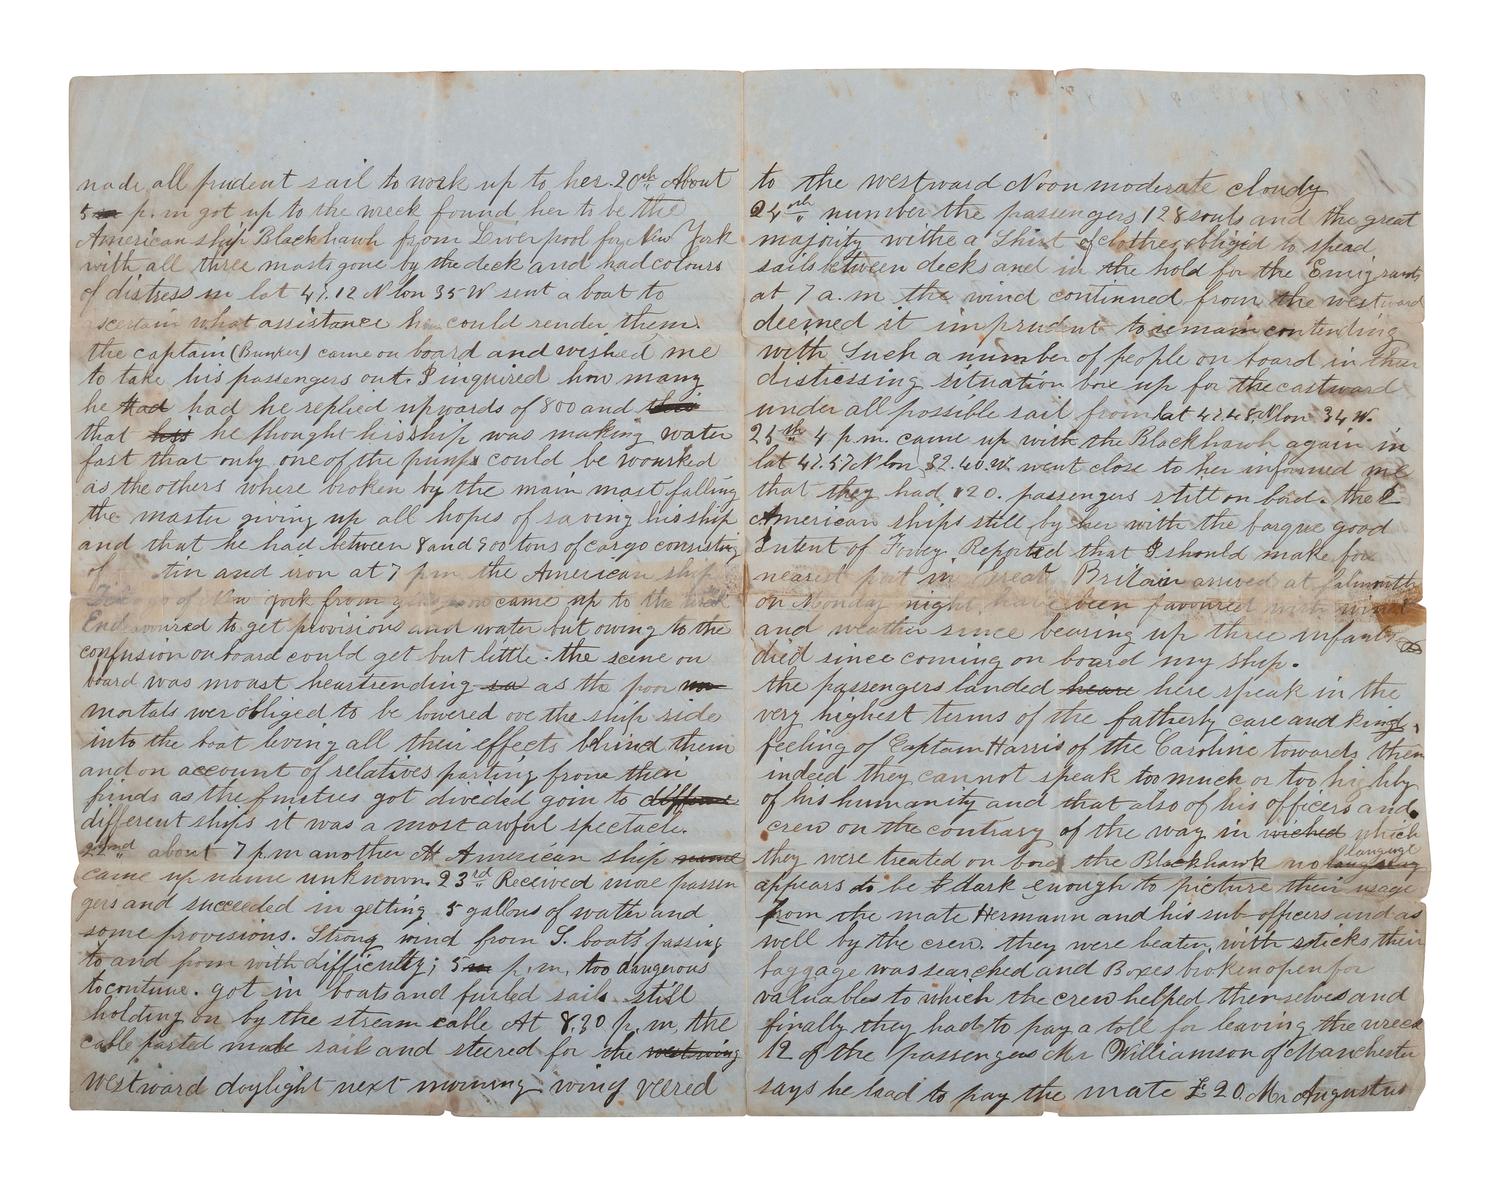 made all prudent sail to work up to her. 20th About
5 p.m got up to the wreck found her to be the
American ship Blackhawk from Liverpool for New York
with all three masts gone by the deck and had colours
of distress in lat 47.12 N lon 35 W sent a boat to
ascertain what assistance he could render them.
the captain (Bunker) came on board and wished me
to take his passengers out. I inquired how many
he had had he replied upwards of 800 and this
that his he thought his ship was making water
fast that only one of the pumps could be wourked
as the others where broken by the main mast falling
the master giving up all hopes of saving his ship
and that he had between 8 and 900 tons of cargo consisting
of tin and iron at 7 pm the American ship
of New York from came up to the wreck
Endevoured to get provisions and water but owing to the
confusion on board could get but little. the scene on
board was moast heartrending so as the poor
mortals wer obliged to be lowered ove the ship side
into the boat leving all their effects behind them
and on account of relatives parting from their
frinds as the got divided goin to
different ships it was a most awful spectacle.
22nd about 7 p.m another A American ship name
came up name unknown. 23rd Received more passen
gers and succeeded in getting 5 gallons of watter and
some provisions. Strong wind from S. boats passing
to and from with difficulty; 5 p.m. too dangerous
to contune. got in boats and furled sails still
holding on by the stream cable At 8.30 p.m. the
cable parted made sail and steered for the
westward daylight next morning wing veered
to the westward Noon moderate cloudy
24th number the passengers 128 souls and the great
majority withe a Shirt of clothes obliged to spead
sails between decks and in the hold for the Emigrants
at 7 a.m the wind continued from the westward
deemed it imprudent to remain contending
with Such a number of people on board in their
distressing situation bore up for the eastward
under all possible sail from lat 47.48. N lon 34 W.
25th 4 p.m. came up with the Blackhawk again in
lat 47.57 N lon 32.40.W. went close to her informed me
that they had 120. passengers still on bord. the 2
American ships still by her with the barque good
Intent of Fowey Reported that I should make for
nearest port in Great Britain arrived at falmouth
on Monday night have been favoured with wind
and weather since bearing up three infants
died since coming on board my ship.
the passengers landed heare here speak in the
very highest terms of the fatherly care and kind
feeling of Captain Harris of the Caroline towards them
indeed they cannot speak too much or too highly
of his humanity and that also of his officers and
crew on the contrary of the way in wiched which
they were treated on bord the Blackhawk no language
appears to be dark enough to picture their usage
from the mate Hermann and his sub officers and as
well by the crew. they were beaten with sticks, their
baggage was searched and Boxes broken open for
valuables to which the crew helped themselves and
finally they had to pay a toll for leaving the wreck
12 of the passengers Mr Williamson of Manchester
says he had to pay the mate £20. Mr Augustus